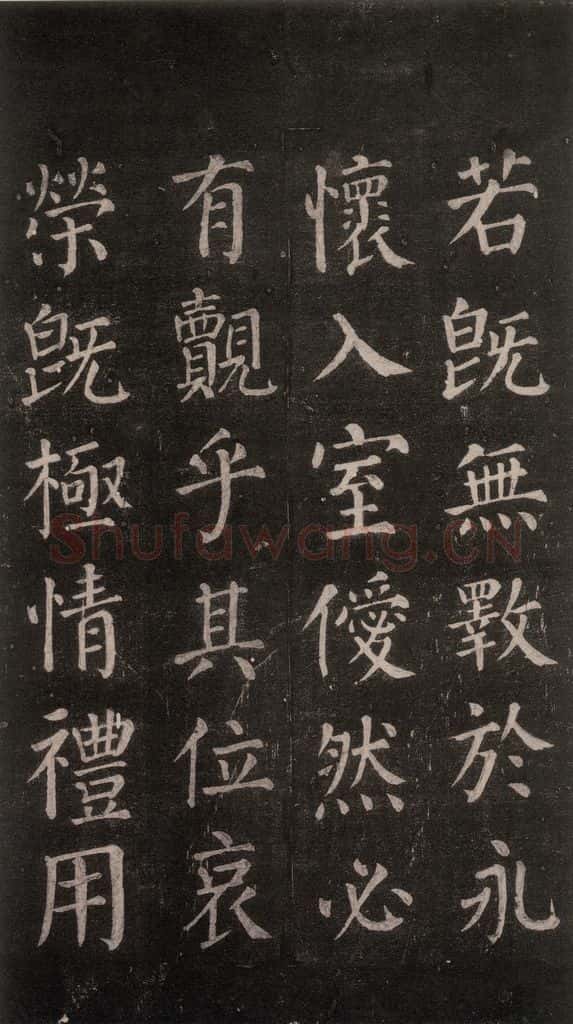 若既無斁於永
懷入室僾然必
有覿乎其位哀
榮既極情禮用
Shufawang.CN